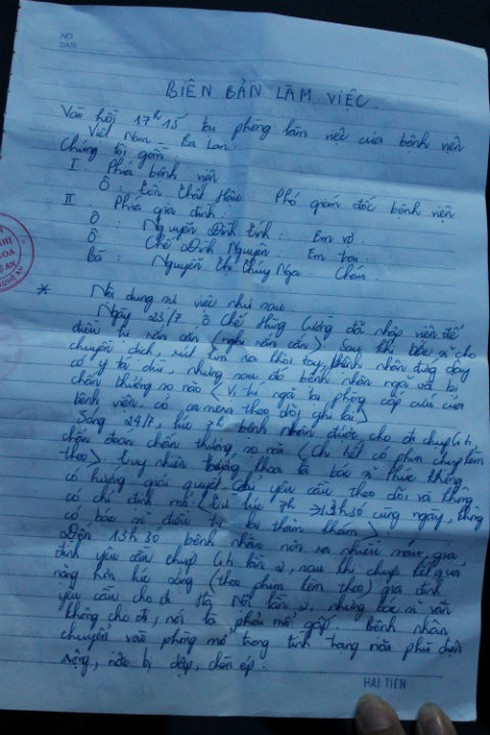 NO
DATE
BIÊN BẢN LÀM VIỆC.
Vào hồi 17h15 tại phòng làm việc của bệnh viện
Việt Nam - Ba Lan.
Chúng tôi gồm
I. Phía bệnh viện
Ô: Tôn Thất Phó giám đốc bệnh viện
II. Phía gia đình:
Ô: Nguyễn Đình Tính: Em vợ.
Ô: Chế Đình Nguyên: Em trai.
Bà: Nguyễn Thị Thúy Nga Cháu
* Nội dung sự việc như sau
Ngày 23/7, ô Chế Hùng Cường đã nhập viện để
điều trị rắn cắn (nghi rắn cắn). Sau khi bác sĩ cho
chuyền dịch, rút kim ra khỏi tay, bệnh nhân đứng dậy
có y tá dìu, nhưng sau đó bệnh nhân ngã và bị
chấn thương sọ não (Vị trí ngã tại phòng cấp cứu của
bệnh viện, có camera theo dõi ghi lại)
Sáng 24/7, lúc 7h bệnh nhân được cho đi chụp
chẩn đoán chấn thương sọ não (Chi tiết có phim chụp kèm
theo). Tuy nhiên trưởng khoa là bác sĩ Phúc không
có hướng giải quyết, yêu cầu theo dõi và không
có chỉ định mổ (Từ lúc 7h → 13h30 cùng ngày, không
có bác sĩ điều trị lại thăm khám)
Đến 13h30 bệnh nhân nôn ra nhiều máu, gia
đình yêu cầu chụp lần 2, sau khi chụp kết quả
nặng hơn lúc sáng (theo phim kèm theo) gia đình
yêu cầu cho đi Hà Nội lần 2, nhưng bác sĩ vẫn
không cho đi, nói là phải mổ gấp. Bệnh nhân
chuyển vào phòng mổ trong tình trạng não phù diện
rộng, não bị dập, chèn ép.
HAI TIEN